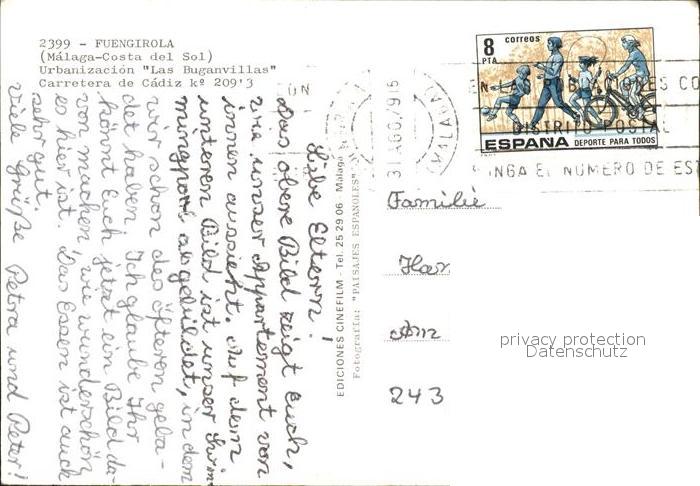 2399 - FUENGIROLA
(Málaga-Costa del Sol)
Urbanización "Las Buganvillas"
Carretera de Cádiz kº 209'3
Liebe Eltern!
Das obere Bild zeigt Euch,
wie unser Appartement von
innen aussieht. Auf dem
unteren Bild ist unser Swim-
mingpool abgebildet, in dem
wir schon des öfteren geba-
det haben. Ich glaube Ihr
könnt Euch jetzt ein Bild da-
von machen, wie wunderschön
es hier ist. Das Essen ist auch
sehr gut.
Viele Grüße Petra und Peter!
EDICIONES CINEFILM - Tel. 25 29 06 - Málaga
Fotografía: "PAISAJES ESPAÑOLES"
8
PTA
correos
ESPAÑA DEPORTE PARA TODOS
DISTRITO POSTAL
PONGA EL NUMERO DE
Familie
Har
Am
243
privacy protection
Datenschutz